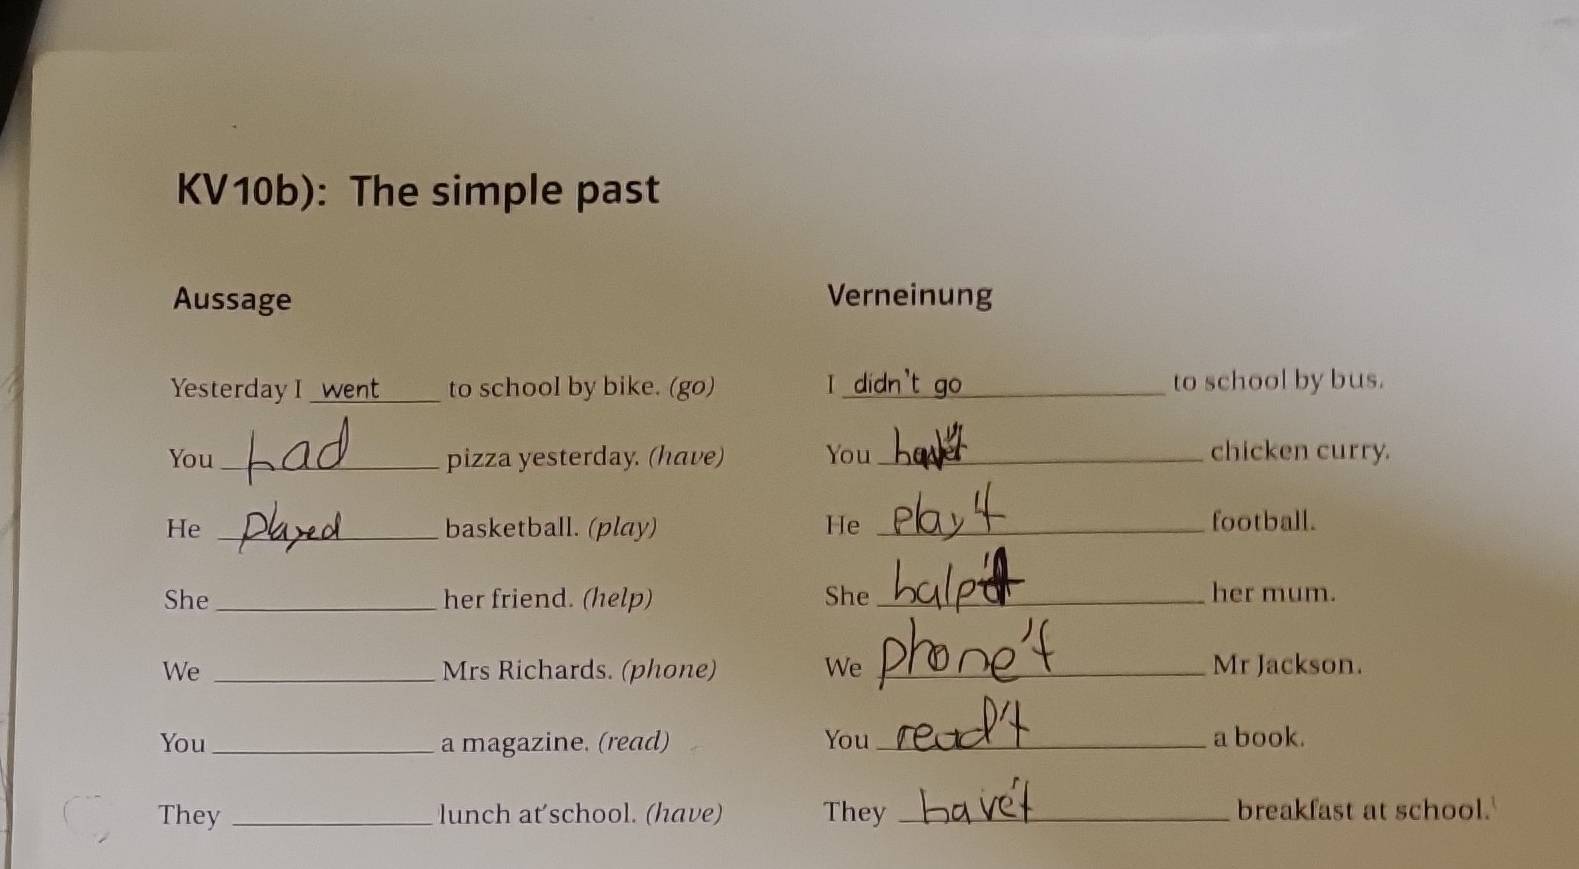 KV10b): The simple past
Aussage Verneinung
Yesterday I went to school by bike. (go) I didn't go to school by bus.
You had pizza yesterday. (have) You have't chicken curry.
He played basketball. (play) He play't football.
She ____ her friend. (help) She halp't her mum.
We ____ Mrs Richards. (phone) We phone't Mr Jackson.
You ____ a magazine. (read) You read't a book.
They ____ lunch at school. (have) They have't breakfast at school.